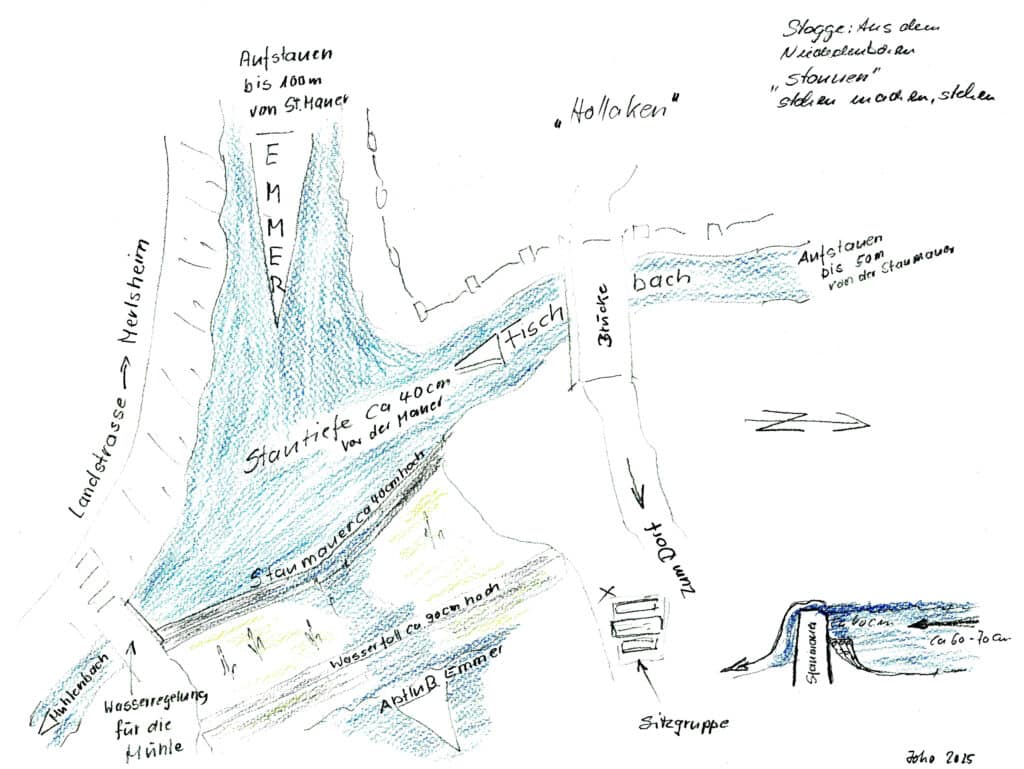 Aufstauen
bis 100m
von St. Mauer
EMMER
"Hollaken"
Stogge: Aus dem
"Stouwen"
stehen machen, stehen
Landstrasse → Merlsheim
Fisch
bach
Brücke
Aufstauen
bis 50m
von der Staumauer
Stautiefe Ca 40cm
vor der Mauer
Staumauer ca 40cm hoch
N
zum Dorf
Wasserfall ca 90cm hoch
Abfluß Emmer
Mühlenbach
Wasserregelung
für die
Mühle
X
Sitzgruppe
Staumauer
ca 40cm
ca 60-70cm
Joho 2025